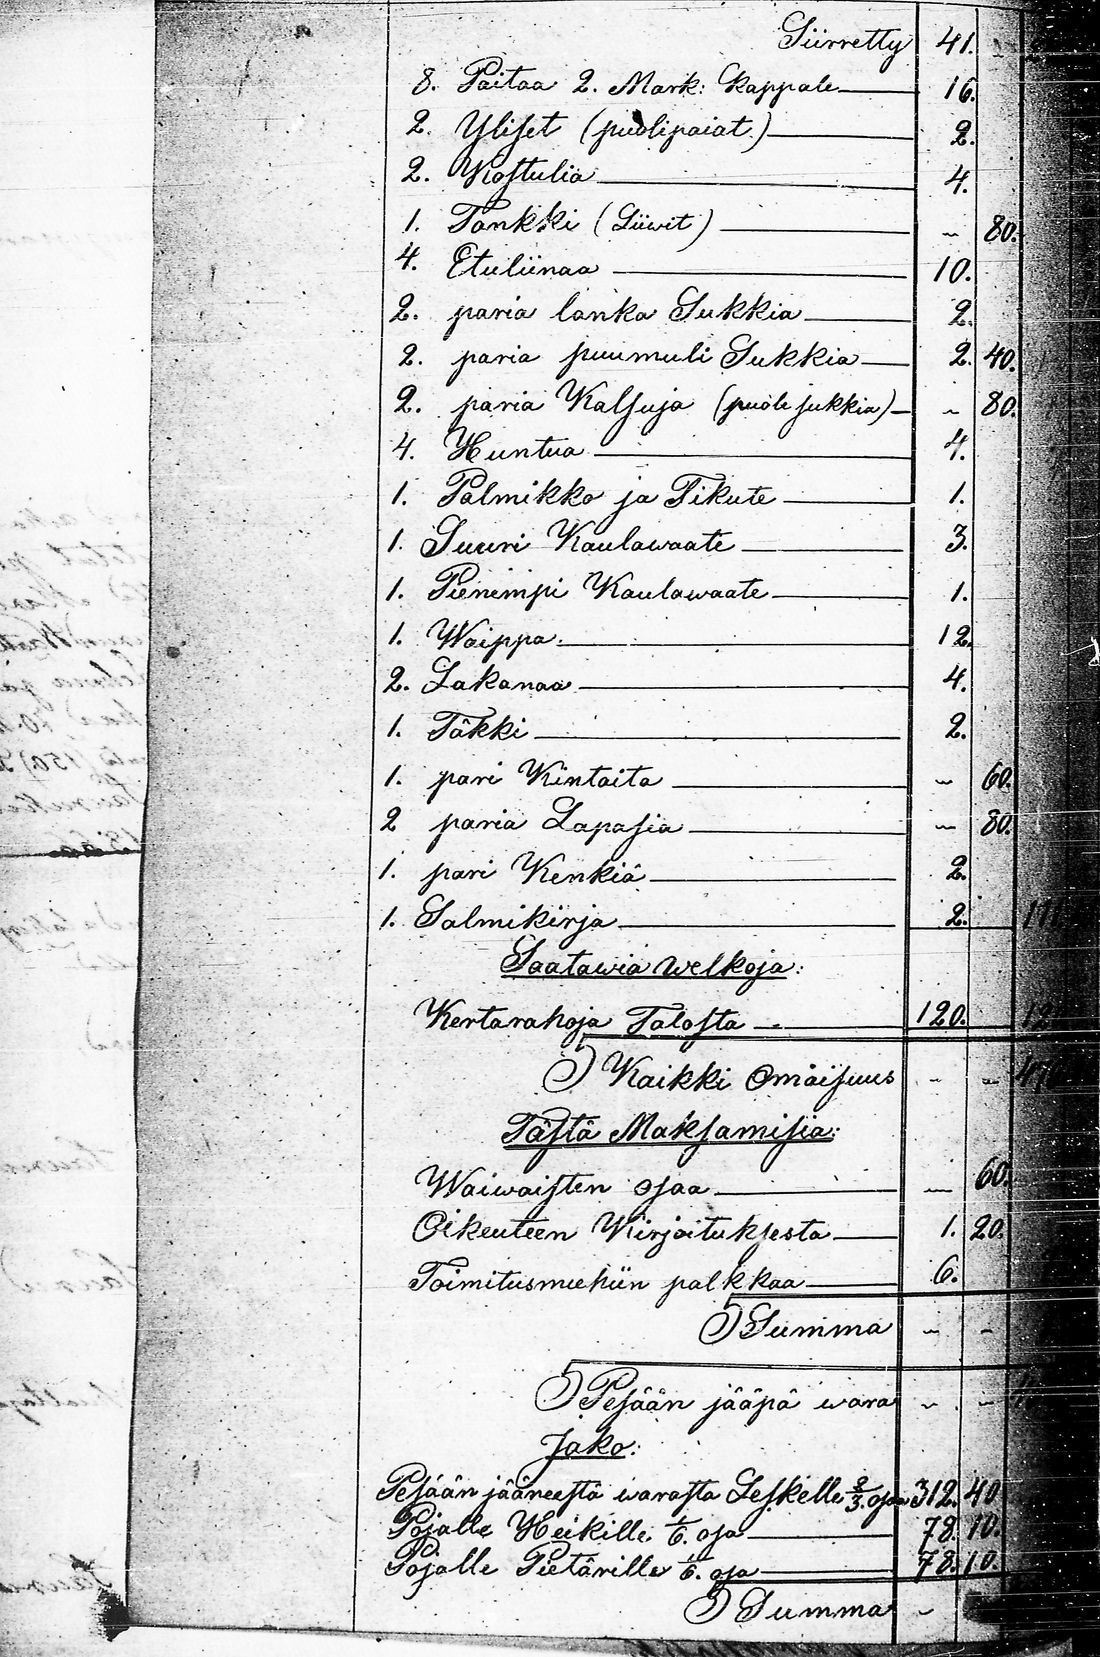 Siirretty 41.
8. Paitaa 2. Mark: Kappale 16.
2. Yliset (puolipaiat.) 2.
2. Kostulia 4.
1. Tankki (Liiwit) " 80.
4. Etuliinaa 10.
2. paria lanka Sukkia 2.
2. paria puumuli Sukkia 2. 40.
2. paria Kalsuja (puole sukkia) " 80.
4. Huntua 4.
1. Palmikko ja Tikute 1.
1. Suuri Kaulawaate 3.
1. Pienempi Kaulawaate 1.
1. Waippa. 12.
2. Lakanaa 4.
1. Täkki 2.
1. pari Kintaita " 60.
2 paria Lapasia " 80.
1. pari Kenkiä 2.
1. Salmikirja 2.
Saatawia welkoja:
Kertarahoja Talosta 120.
Kaikki Omaisuus " "
Tästä Maksamisia:
Waiwaisten osaa " 60.
Oikeuteen Kirjoituksesta 1. 20.
Toimitusmiehiin palkkaa 6.
Summa " "
Pesään jääpä wara " "
Jako:
Pesään jääneestä warasta Leskelle 2/3. osaa 312. 40
Pojalle Heikille 1/6. osa 78. 10.
Pojalle Pietärille 1/6. osa 78. 10.
Summa "